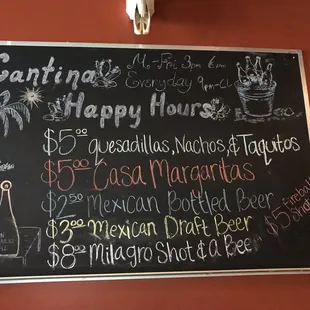 Cantina
Mo-Fri 3pm 6pm
Everyday 9pm-Cl
Happy Hours
$5.00 quesadillas, Nachos, & Taquitos
$5.00 Casa Margaritas
$2.50 Mexican Bottled Beer
$3.00 Mexican Draft Beer
$8.00 Milagro Shot & a Beer
$5 Fireball
Shot